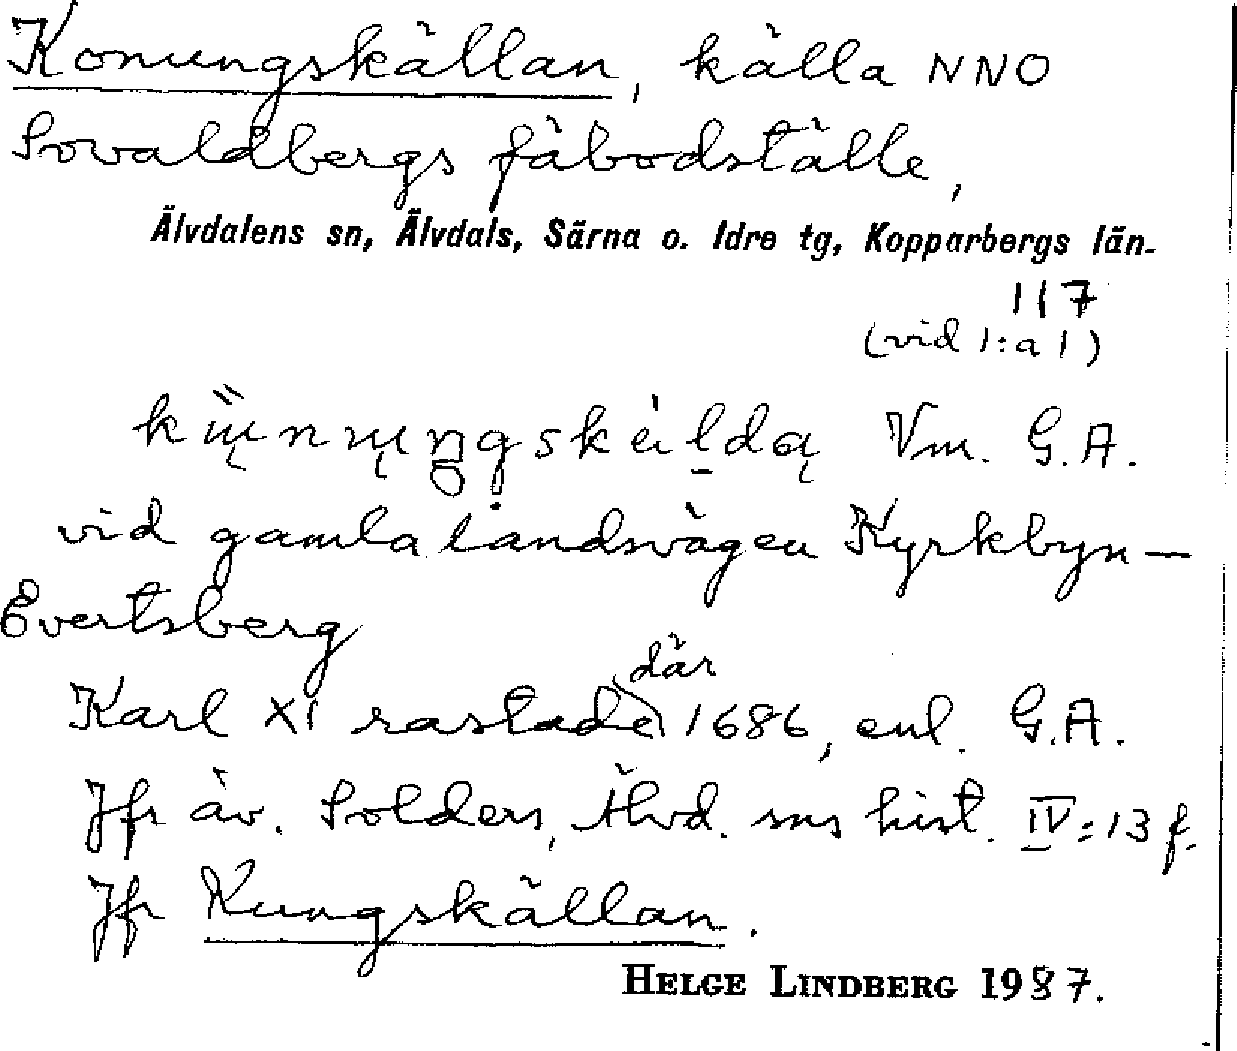 Konungskällan, källa NNO
Sovaldbergs fäbodställe,
Älvdalens sn, Älvdals, Särna o. Idre tg, Kopparbergs län.
117
(vid 1:a 1)
Vm. G.A.
vid gamla landsvägen Kyrkbyn—
Evertsberg
där
Karl XI rastade 1686, enl. G.A.
Jfr äv. Solders, Älvd. sns hist. IV:13 f.
Jfr Kungskällan.
HELGE LINDBERG 1987.